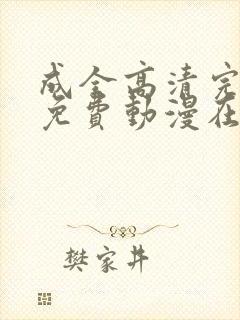 成全高清完
免費動漫在
樊家井